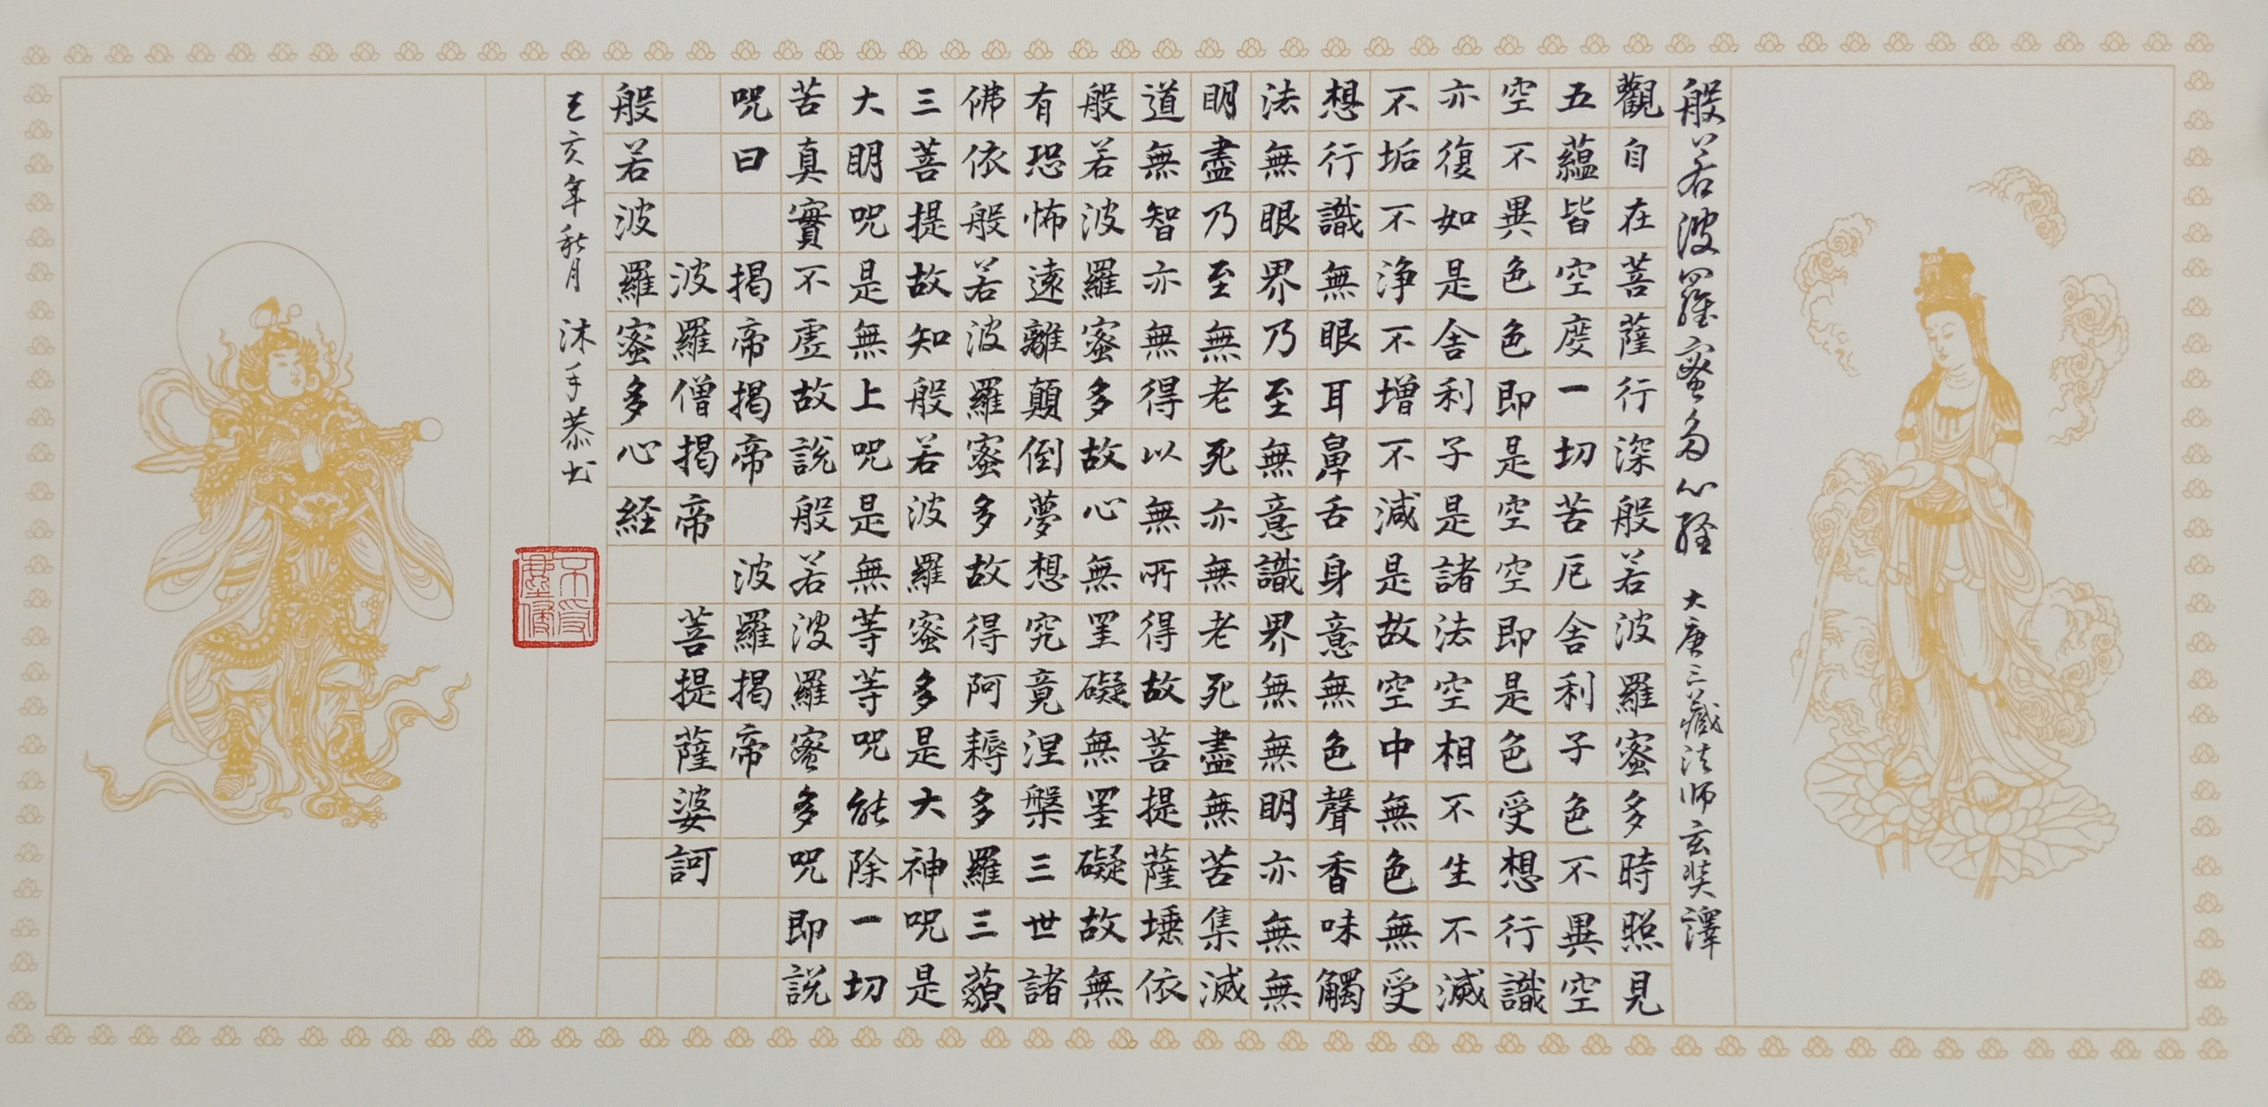 般若波羅蜜多心経 大唐三藏法师玄奘譯
觀自在菩薩行深般若波羅蜜多時照見
五蘊皆空度一切苦厄舍利子色不異空
空不異色色即是空空即是色受想行識
亦復如是舍利子是諸法空相不生不滅
不垢不淨不增不減是故空中無色無受
想行識無眼耳鼻舌身意無色聲香味觸
法無眼界乃至無意識界無無明亦無無
明盡乃至無老死亦無老死盡無苦集滅
道無智亦無得以無所得故菩提薩埵依
般若波羅蜜多故心無罣礙無罣礙故無
有恐怖遠離顛倒夢想究竟涅槃三世諸
佛依般若波羅蜜多故得阿耨多羅三藐
三菩提故知般若波羅蜜多是大神咒是
大明咒是無上咒是無等等咒能除一切
苦真實不虛故說般若波羅蜜多咒即說
咒曰 揭帝揭帝 波羅揭帝
波羅僧揭帝 菩提薩婆訶
般若波羅蜜多心経
亥年秋月 沐手恭书
不受
塵侵